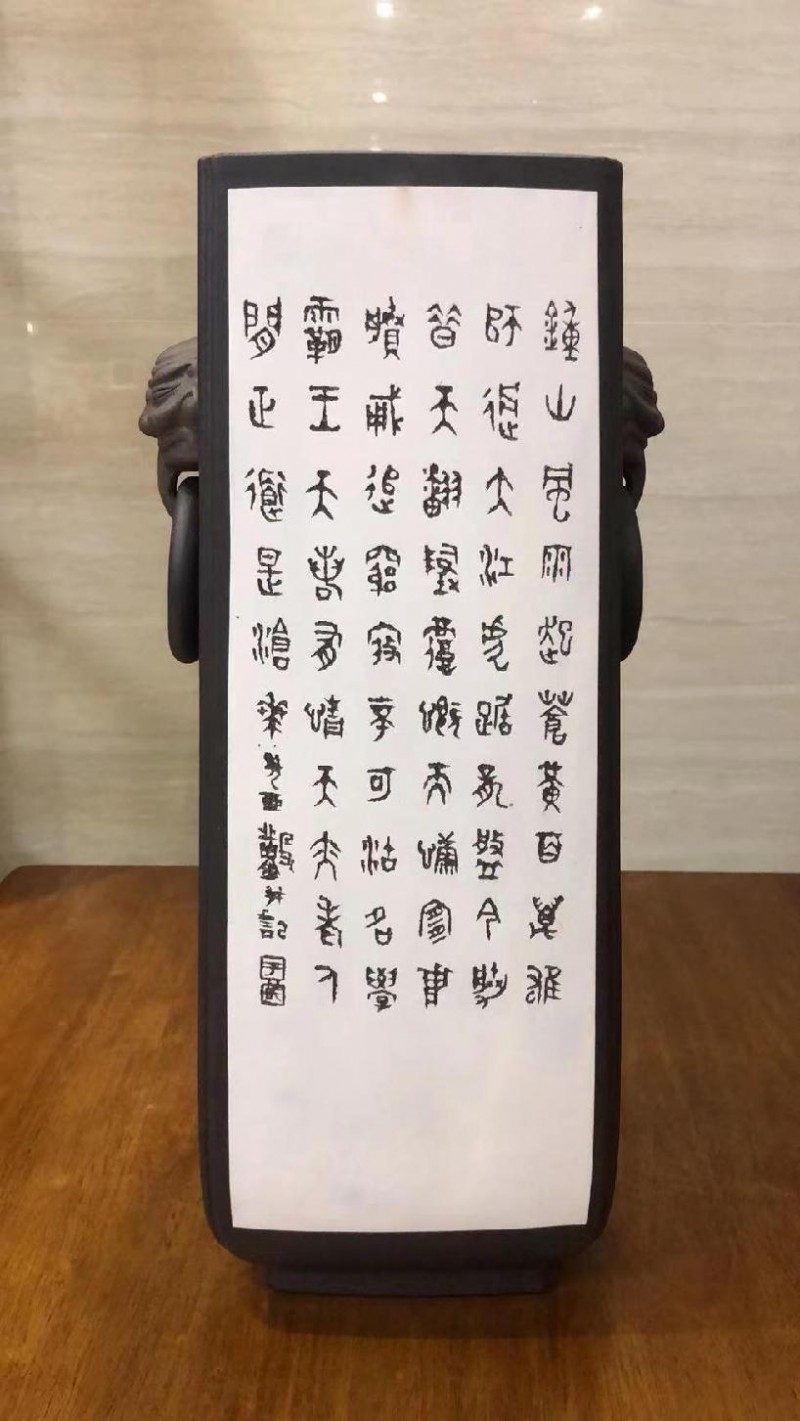 鍾山風雨起蒼黃百萬雄
師過大江虎踞龍盤今勝
昔天翻地覆慨而慷宜將
賸勇追窮寇不可沽名學
霸王天若有情天亦老人
間正道是滄桑
并記